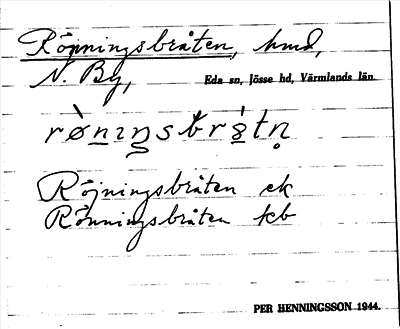 Röjningsbråten, hmd,
N. By,
Eda sn, Jösse hd, Värmlands län.
Röjningsbråten ek
Rönningsbråten kb
PER HENNINGSSON 1944.